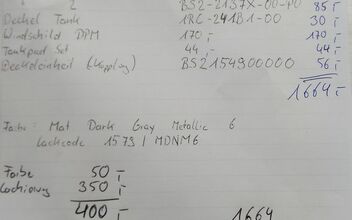 2
BS2-2137X-00-P0 85,-
Deckel Tank 1RC-241B1-00 30,-
Windschild DPM 170,- 170,-
Tankpad Set 44,- 44,-
Deckeleinheit (Kupplung) BS2154900000 56,-
1664,-
Farbe: Mat Dark Gray Metallic 6
Lackcode 1573 / MDNM6
Farbe 50,-
Lackierung 350,-
400,- 1664